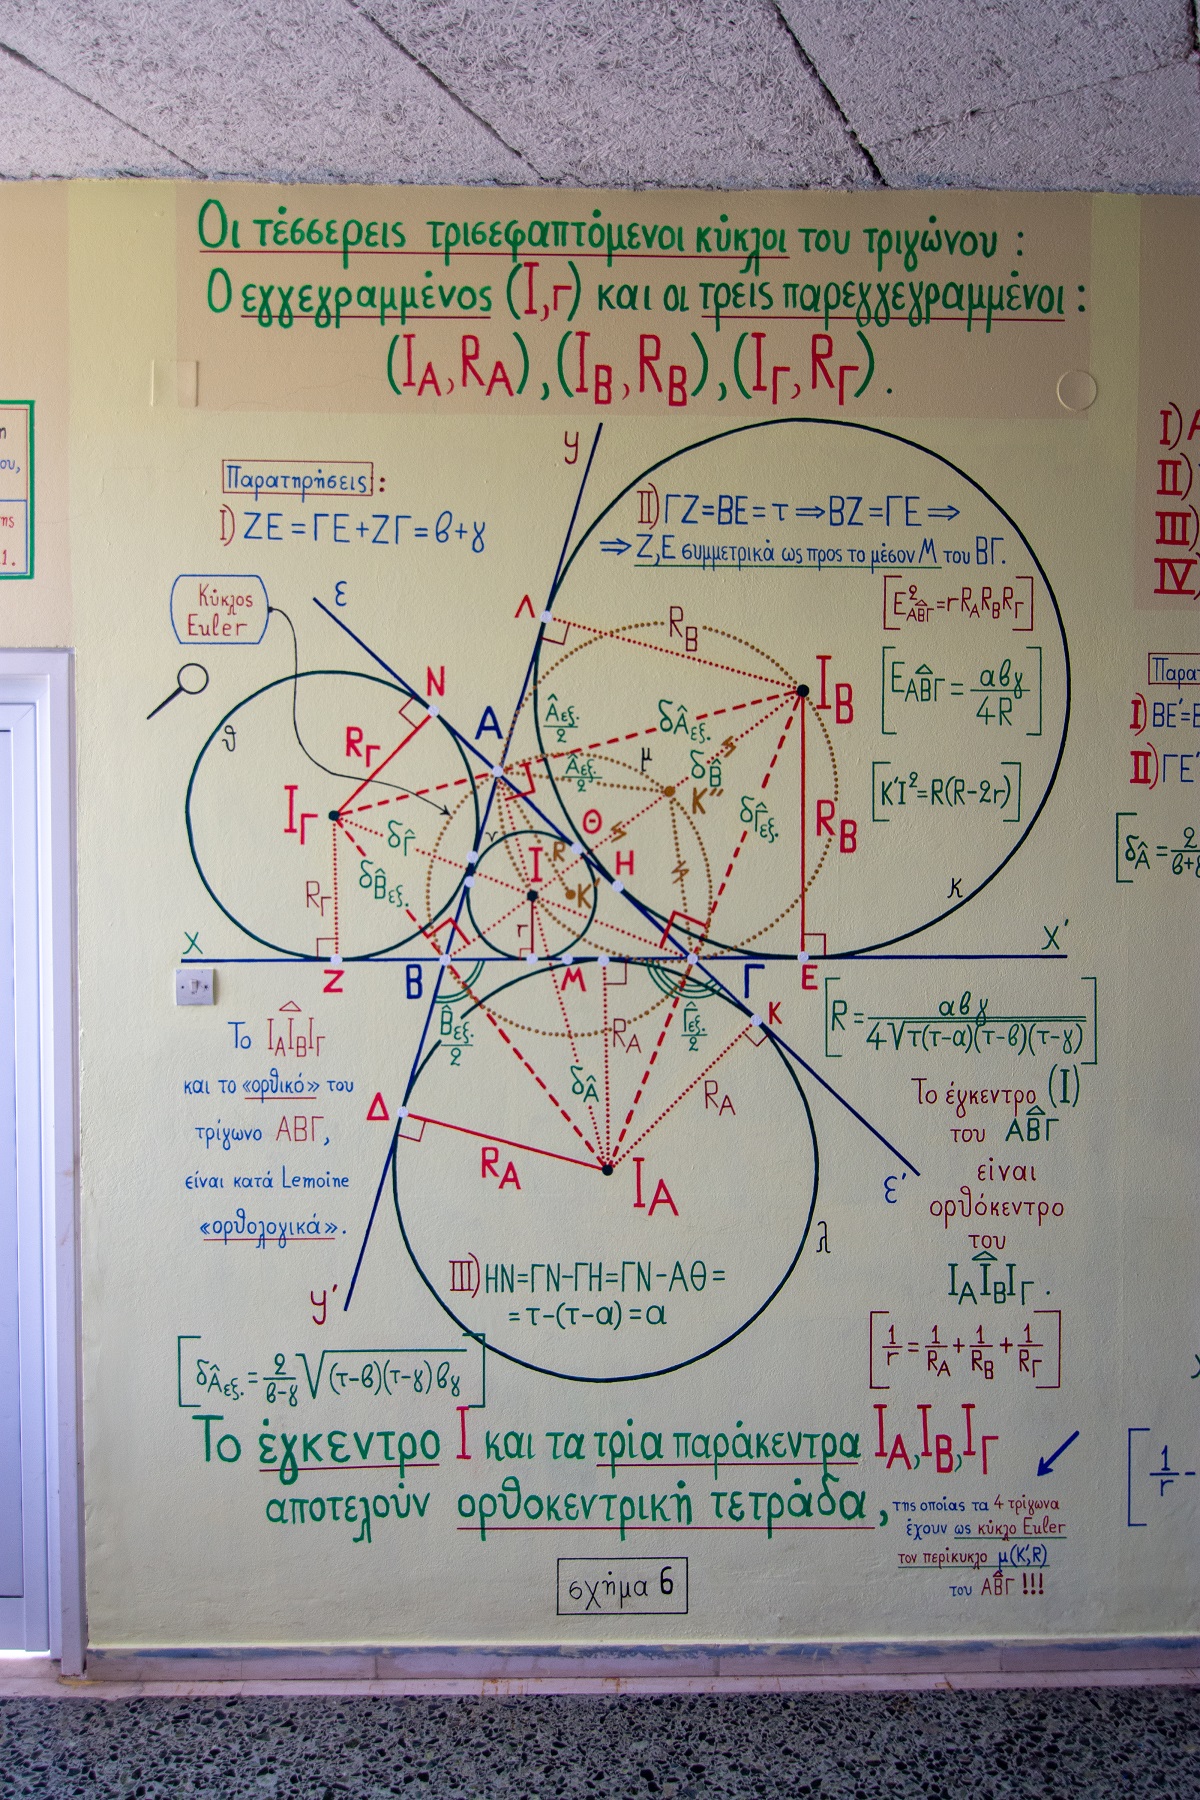 Οι τέσσερεις τρισεφαπτόμενοι κύκλοι του τριγώνου :
Ο εγγεγραμμένος (Ι,r) και οι τρεις παρεγγεγραμμένοι :
(I_A, R_A), (I_B, R_B), (I_Γ, R_Γ).
Παρατηρήσεις :
I) ΖΕ = ΓΕ + ΖΓ = β + γ
y
II) ΓΖ = ΒΕ = τ ⇒ ΒΖ = ΓΕ ⇒
⇒ Ζ,Ε συμμετρικά ως προς το μέσον Μ του ΒΓ.
[E²_ΑΒ̂Γ = r R_A R_B R_Γ]
[E_ΑΒ̂Γ = αβγ/4R]
[K'I² = R(R-2r)]
Κύκλος
Euler
ε
Λ
R_B
I_B
N
A
Â εξ./2
δ_Â εξ.
μ
Â εξ./2
δ_B̂
K''
δ_Γ̂ εξ.
R_B
θ
R_Γ
I_Γ
δ_Γ̂
δ_B̂ εξ.
R_Γ
ν
Θ
H
I
R
K'
r
κ
x
x'
Z
B
M
Γ
E
K
B̂ εξ./2
Γ̂ εξ./2
R_A
δ_Â
R_A
Δ
R_A
I_A
ε'
λ
y'
[R = αβγ/4√τ(τ-α)(τ-β)(τ-γ)]
Το I_A Î_B I_Γ
και το «ορθικό» του
τρίγωνο ΑΒΓ,
είναι κατά Lemoine
«ορθολογικά».
Το έγκεντρο (I)
του ΑΒ̂Γ
είναι
ορθόκεντρο
του
I_A Î_B I_Γ .
III) ΗΝ = ΓΝ-ΓΗ = ΓΝ-ΑΘ =
= τ-(τ-α) = α
[1/r = 1/R_A + 1/R_B + 1/R_Γ]
[δ_Â εξ. = 2/β-γ √(τ-β)(τ-γ)βγ]
Το έγκεντρο I και τα τρία παράκεντρα I_A, I_B, I_Γ
αποτελούν ορθοκεντρική τετράδα,
της οποίας τα 4 τρίγωνα
έχουν ως κύκλο Euler
τον περίκυκλο μ(Κ',R)
του ΑΒ̂Γ !!!
σχήμα 6
ου,
ης
1.
I) A
II)
III)
IV)
I) ΒΕ' =
II) ΓΕ'
[δ_Â = 2/β+
[1/r -